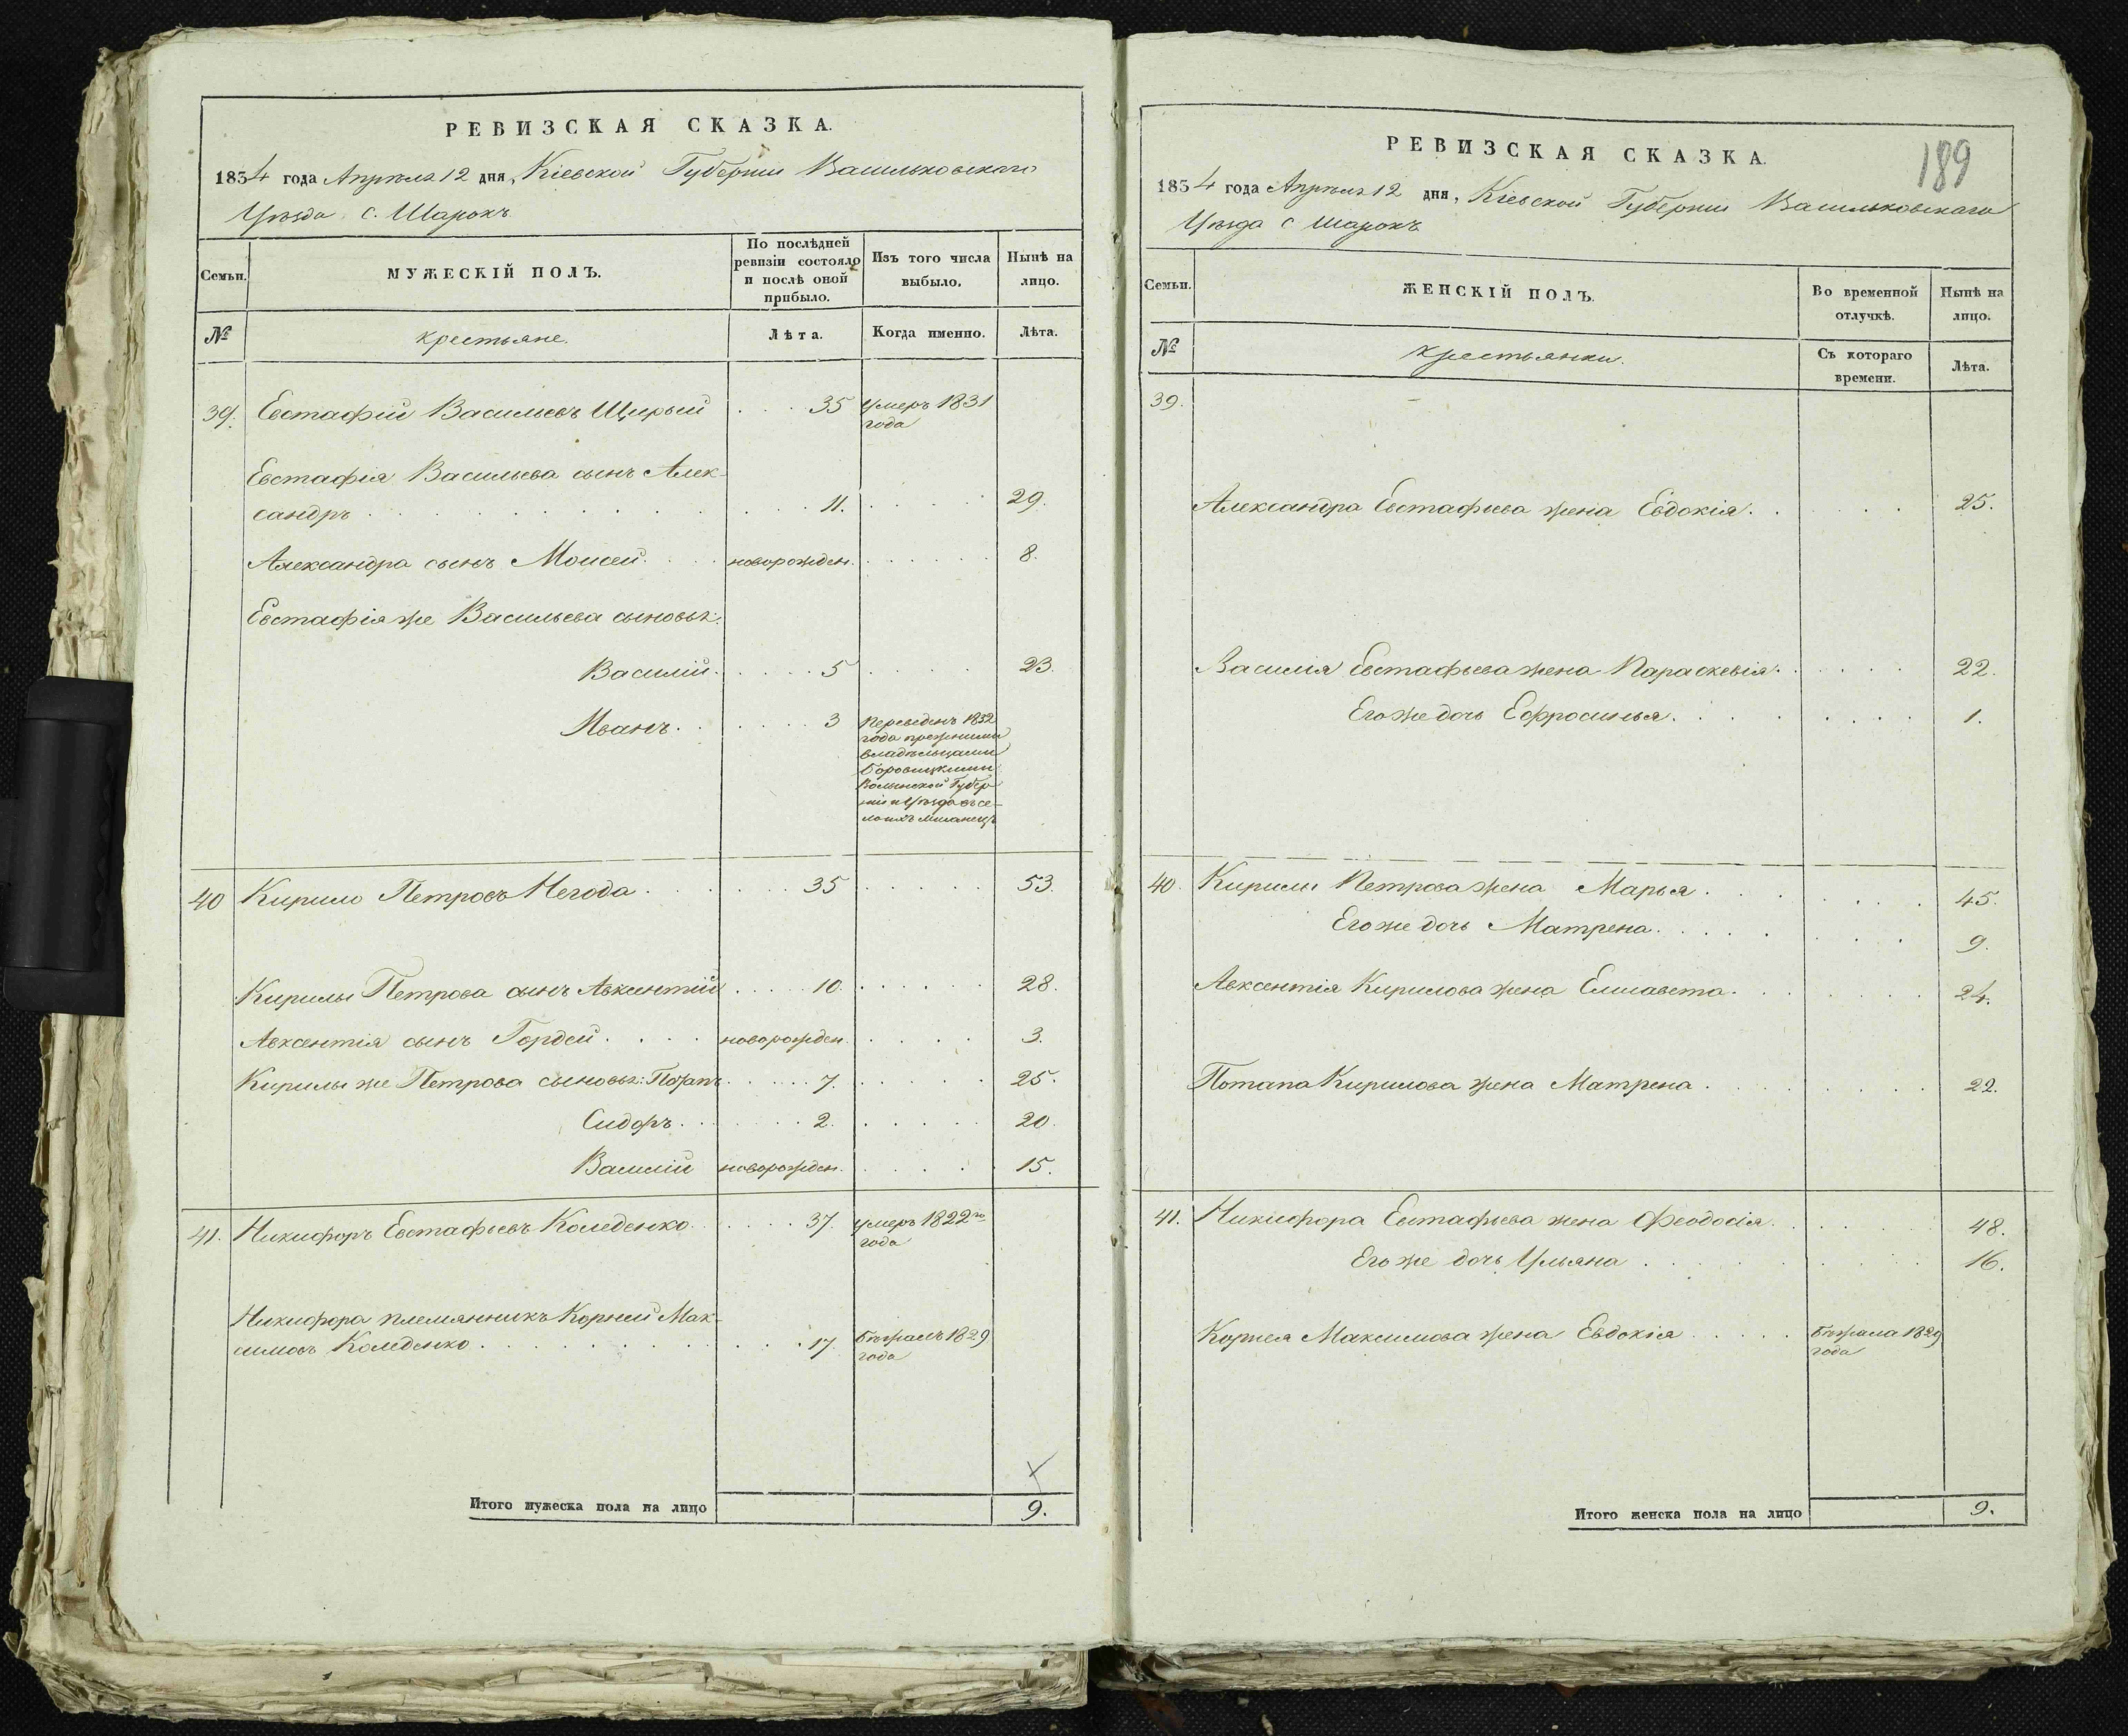 РЕВИЗСКАЯ СКАЗКА.
1834 года Апрѣля 12 дня, Кіевской Губерніи Васильковскаго
Уѣзда с. Шарокъ
Семьи.
МУЖЕСКІЙ ПОЛЪ.
По послѣдней
ревизіи состояло
и послѣ оной
прибыло.
Изъ того числа
выбыло.
Нынѣ на
лицо.
№
крестьяне.
Лѣта.
Когда именно.
Лѣта.
39. Евстафій Васильевъ Щирый 35 умеръ 1831
года
Евстафія Васильева сынъ Алек-
сандръ 11. 29.
Александра сынъ Моисей новорожден. 8.
Евстафія же Васильева сыновья:
Василій 5 23.
Иванъ 3 Переведенъ 1832
года прежними
владѣльцами
Боровицкими
Волынской Губер
ніи и Уѣзда въ се-
40 Кирило Петровъ Негода 35 53.
Кирилы Петрова сынъ Авксентій 10. 28.
Авксентія сынъ Гордей новорожден. 3.
Кирилы же Петрова сыновья: Потапъ 7. 25.
Сидоръ 2. 20.
Василій новорожден. 15.
41. Никифоръ Евстафьевъ Коледенко 37. умеръ 1822го
года
Никифора племянникъ Корней Мак-
симовъ Коледенко 17. Бѣжалъ 1829
года
Итого мужеска пола на лицо 9.
189
РЕВИЗСКАЯ СКАЗКА.
1834 года Апрѣля 12 дня, Кіевской Губерніи Васильковскаго
Уѣзда с Шарокъ
Семьи.
ЖЕНСКІЙ ПОЛЪ.
Во временной
отлучкѣ.
Нынѣ на
лицо.
№
крестьянки.
Съ котораго
времени.
Лѣта.
39.
Александра Евстафьева жена Евдокія 25.
Василія Евстафьева жена Параскевія 22.
Его же дочь Ефросинья 1.
40. Кирилы Петрова жена Марья 45.
Его же дочь Матрена 9.
Авксентія Кирилова жена Елисавета 24.
Потапа Кирилова жена Матрена 22.
41. Никифора Евстафьева жена Феодосія 48.
Его же дочь Ульяна 16.
Корнея Максимова жена Евдокія Бѣжала 1829
года
Итого женска пола на лицо 9.